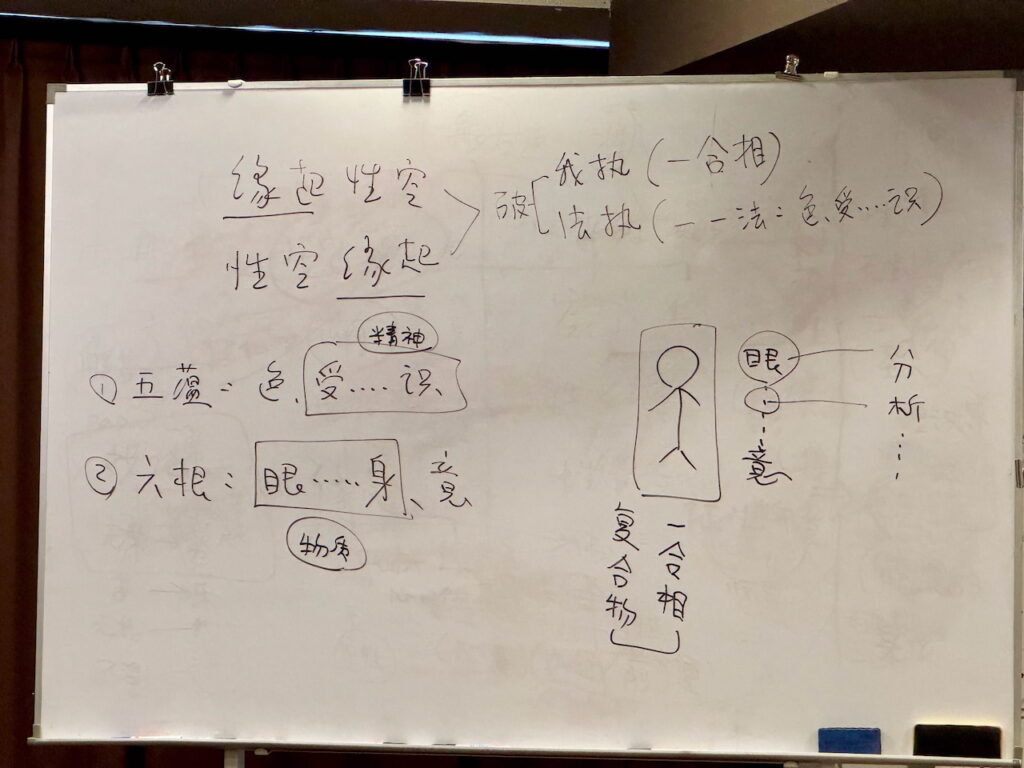 缘起性空
性空缘起
破
我执(一合相)
法执(一一法:色、受....识)
精神
①五蕴:色、受....识
②六根:眼.....身、意
物质
眼
意
分析
一合相
复合物